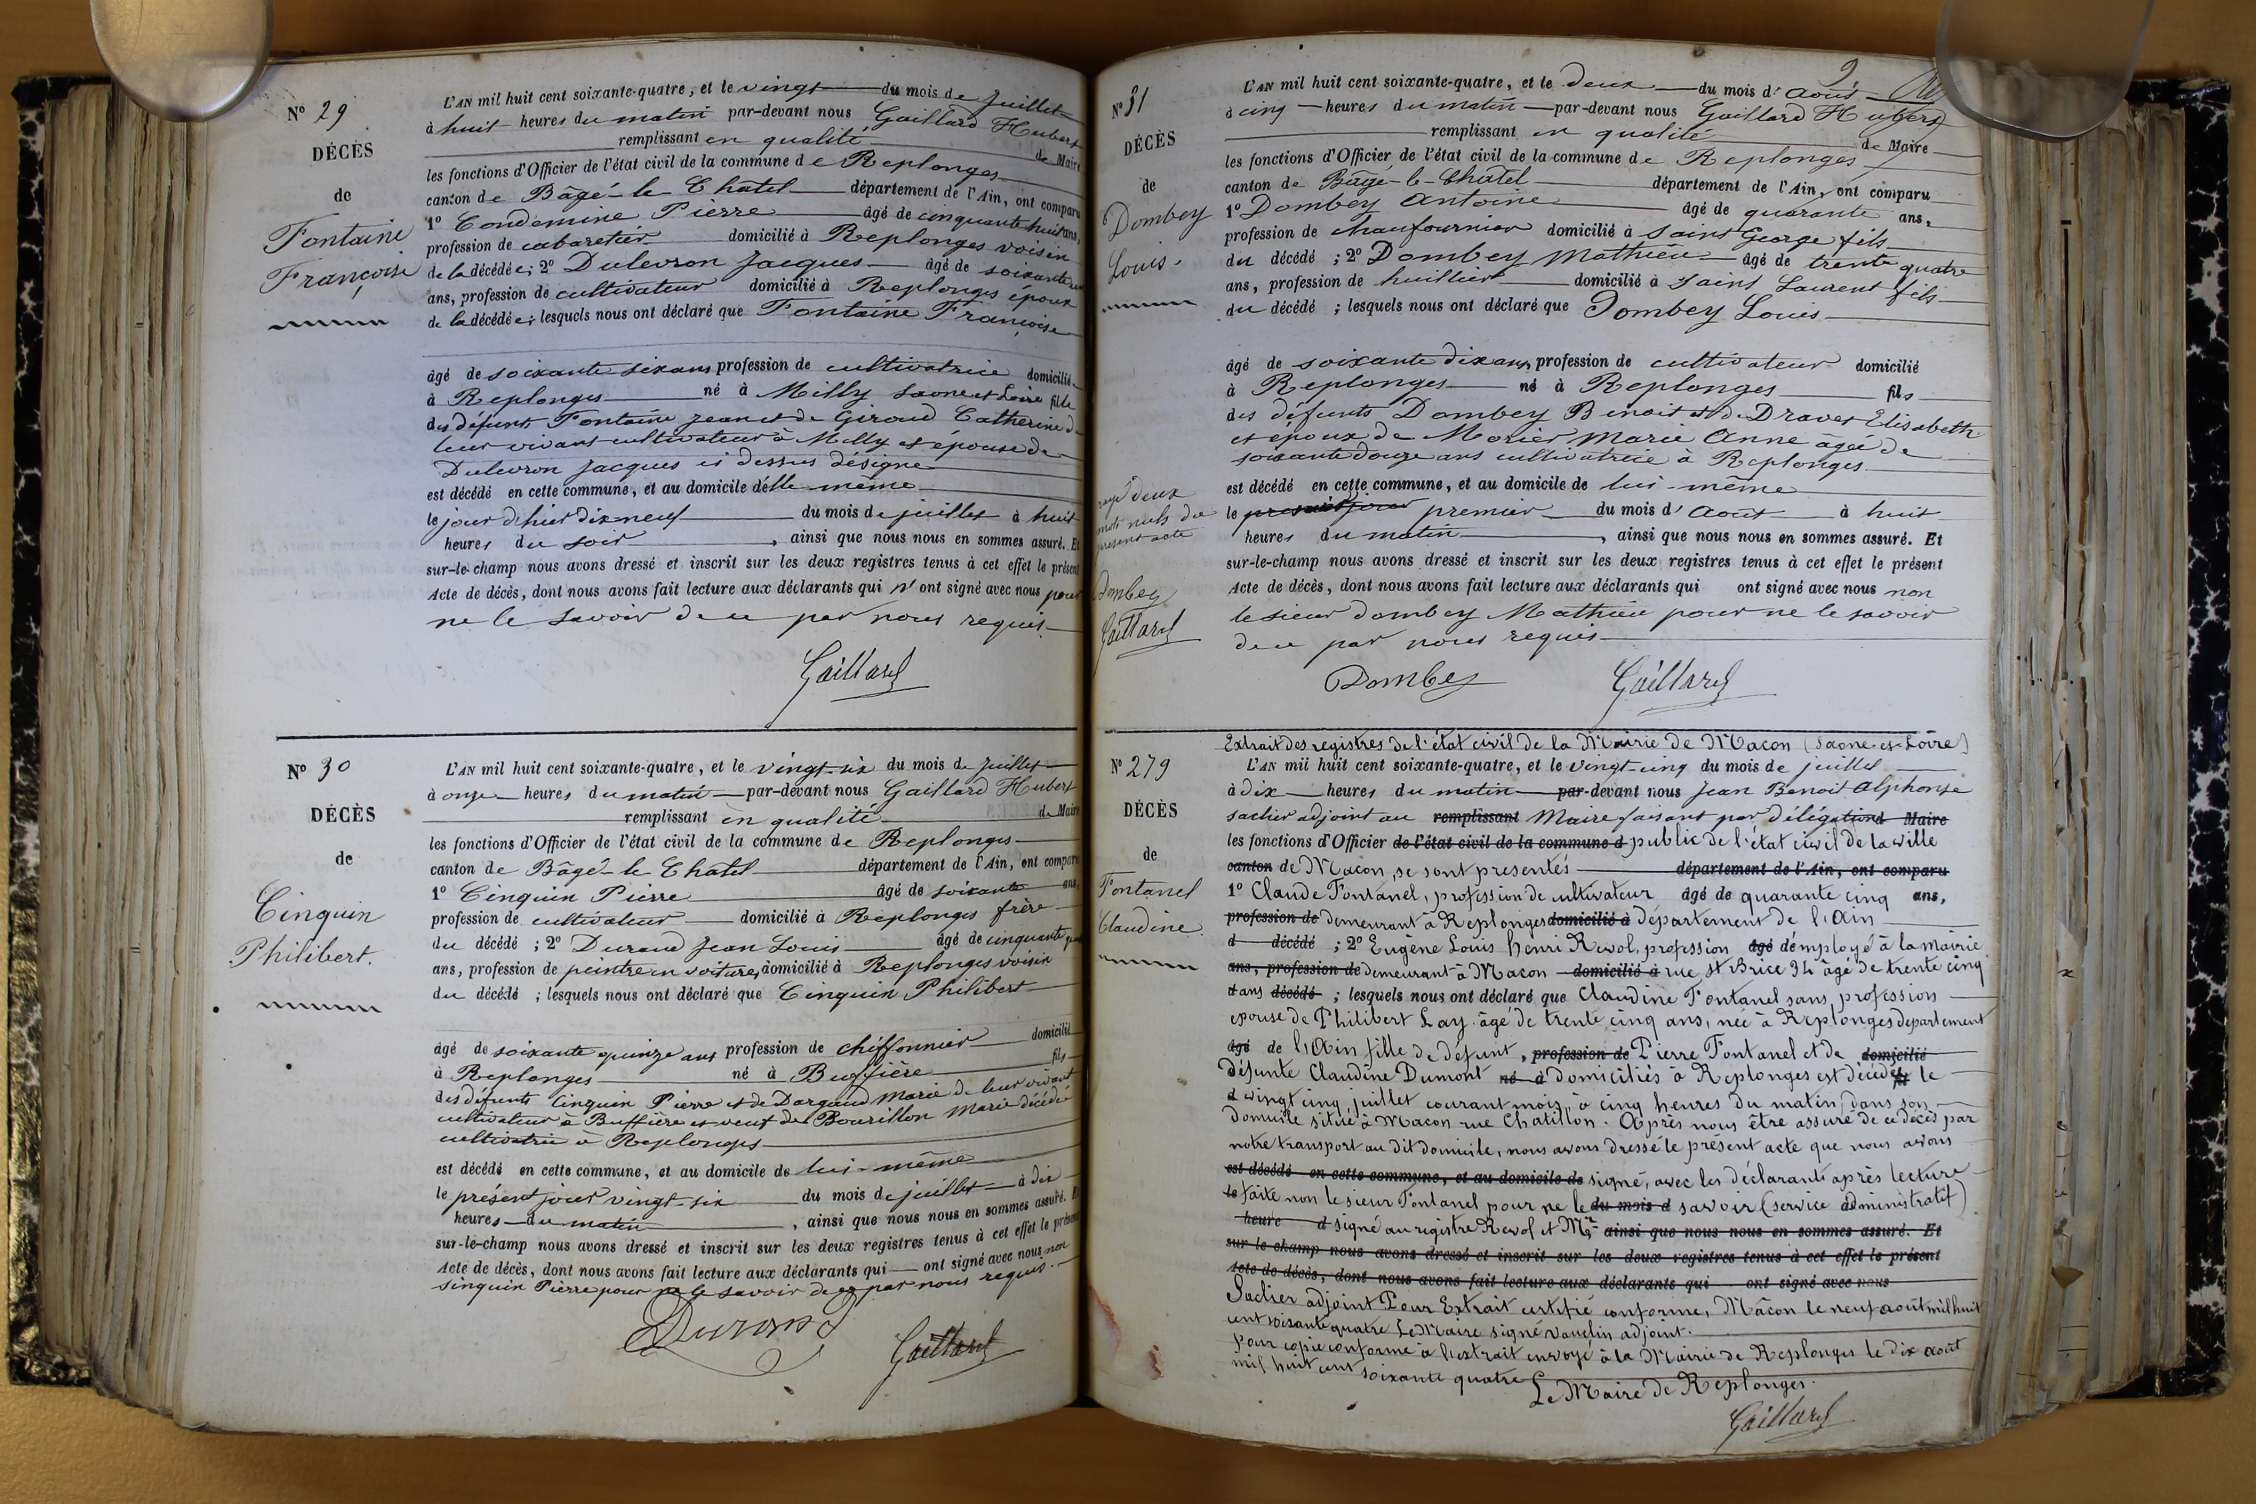 N° 29
DÉCÈS
de
Fontaine
Françoise
L'AN mil huit cent soixante-quatre, et le vingt du mois de Juillet
à huit heures du matin par-devant nous Gaillard Hubert
remplissant en qualité de Maire
les fonctions d'Officier de l'état civil de la commune de Replonges
canton de Bâgé-le Chatel département de l'Ain, ont comparu
1° Condemine Pierre âgé de cinquante huit ans,
profession de cabaretier domicilié à Replonges voisin
de la décédée; 2° Dulevron Jacques âgé de soixante
ans, profession de cultivateur domicilié à Replonges époux
de la décédée; lesquels nous ont déclaré que Fontaine Françoise
âgé de soixante six ans profession de cultivatrice domicilié
à Replonges né à Milly Saone et Loire fille
des défunts Fontaine Jean et de Giroud Catherine de
leur vivant cultivateur à Milly et épouse de
Dulevron Jacques ci dessus désigné
est décédé en cette commune, et au domicile d'elle même
le jour d'hier dix neuf du mois de juillet à huit
heures du soir, ainsi que nous nous en sommes assuré. Et
sur-le-champ nous avons dressé et inscrit sur les deux registres tenus à cet effet le présent
Acte de décès, dont nous avons fait lecture aux déclarants qui n'ont signé avec nous pour
ne le savoir de ce par nous requis
Gaillard
N° 30
DÉCÈS
de
Cinquin
Philibert.
L'AN mil huit cent soixante-quatre, et le vingt-six du mois de Juillet
à onze heures du matin par-devant nous Gaillard Hubert
remplissant en qualité de Maire
les fonctions d'Officier de l'état civil de la commune de Replonges
canton de Bâgé-le Chatel département de l'Ain, ont comparu
1° Cinquin Pierre âgé de soixante ans,
profession de cultivateur domicilié à Replonges frère
du décédé; 2° Durand Jean Louis âgé de cinquante
ans, profession de peintre en voitures, domicilié à Replonges voisin
du décédé; lesquels nous ont déclaré que Cinquin Philibert
âgé de soixante quinze ans profession de chiffonnier domicilié
à Replonges né à Buffière fils
des défunts Cinquin Pierre et de Dargaud Marie de leur vivant
cultivateur à Buffière et veuf de Bourillon Marie décédée
cultivatrice à Replonges
est décédé en cette commune, et au domicile de lui-même
le présent jour vingt-six du mois de juillet à dix
heures du matin, ainsi que nous nous en sommes assuré. Et
sur-le-champ nous avons dressé et inscrit sur les deux registres tenus à cet effet le présent
Acte de décès, dont nous avons fait lecture aux déclarants qui ont signé avec nous non
Sinquin Pierre pour ne le savoir de ce par nous requis.
Durand
Gaillard
2
N° 31
DÉCÈS
de
Dombey
Louis.
L'AN mil huit cent soixante-quatre, et le deux du mois d'Août
à cinq heures du matin par-devant nous Gaillard Hubert
remplissant en qualité de Maire
les fonctions d'Officier de l'état civil de la commune de Replonges
canton de Bâgé-le-Chatel département de l'Ain, ont comparu
1° Dombey Antoine âgé de quarante ans,
profession de chaufournier domicilié à Saint George fils
du décédé; 2° Dombey Mathieu âgé de trente quatre
ans, profession de huillier domicilié à Saint Laurent fils
du décédé; lesquels nous ont déclaré que Dombey Louis
âgé de soixante dix ans profession de cultivateur domicilié
à Replonges né à Replonges fils
des défunts Dombey Benoit et de Dravet Elisabeth
et époux de Morier Marie Anne âgée de
soixante douze ans cultivatrice à Replonges
est décédé en cette commune, et au domicile de lui-même
le présent jour premier du mois d'Août à huit
heures du matin, ainsi que nous nous en sommes assuré. Et
sur-le-champ nous avons dressé et inscrit sur les deux registres tenus à cet effet le présent
Acte de décès, dont nous avons fait lecture aux déclarants qui ont signé avec nous non
le sieur dombey Mathieu pour ne le savoir
de ce par nous requis
Dombey Gaillard
rayé deux
mots nuls du
présent acte
Dombey
Gaillard
Extrait des registres de l'état civil de la Mairie de Macon (Saone-et-Loire)
N° 279
DÉCÈS
de
Fontanel
Claudine.
L'AN mil huit cent soixante-quatre, et le vingt-cinq du mois de juillet
à dix heures du matin par-devant nous Jean Benoit Alphonse
Saclier adjoint au remplissant Maire faisant par délégation d Maire
les fonctions d'Officier de l'état civil de la commune d public de l'état civil de la ville
canton de Macon, se sont présentés département de l'Ain, ont comparu
1° Claude Fontanel, profession de cultivateur âgé de quarante cinq ans,
profession de demeurant à Replonges domicilié à département de l'Ain
d décédé; 2° Eugène Louis henri Revol, profession âgé d'employé à la mairie
ans, profession de demeurant à Macon domicilié à rue St Brice 34 âgé de trente cinq
d ans décédé; lesquels nous ont déclaré que Claudine Fontanel sans profession
epouse de Philibert Lay âgé de trente cinq ans, née à Replonges département
âgé de l'Ain fille de défunt, profession de Pierre Fontanel et de domicilié
défunte Claudine Dumont né à domiciliés à Replonges est décédée fil le
d vingt cinq juillet courant mois, à cinq heures du matin dans son
domicile situé à Macon rue Chatillon. Après nous être assuré de ce décès par
notre transport au dit domicile, nous avons dressé le présent acte que nous avons
est décédé en cette commune, et au domicile de signé, avec les déclarants après lecture
le faite non le sieur Fontanel pour ne le du mois d savoir (service administratif)
heure d signé au registre Revol et Mr ainsi que nous nous en sommes assuré. Et
sur-le-champ nous avons dressé et inscrit sur les deux registres tenus à cet effet le présent
Acte de décès, dont nous avons fait lecture aux déclarants qui ont signé avec nous
Saclier adjoint Pour Extrait certifié conforme, Mâcon le neuf août mil huit
cent soixante quatre Le Maire signé Vauclin adjoint.
Pour copie conforme à l'extrait envoyé à la Mairie de Replonges le dix août
mil huit cent soixante quatre
Le Maire de Replonges.
Gaillard